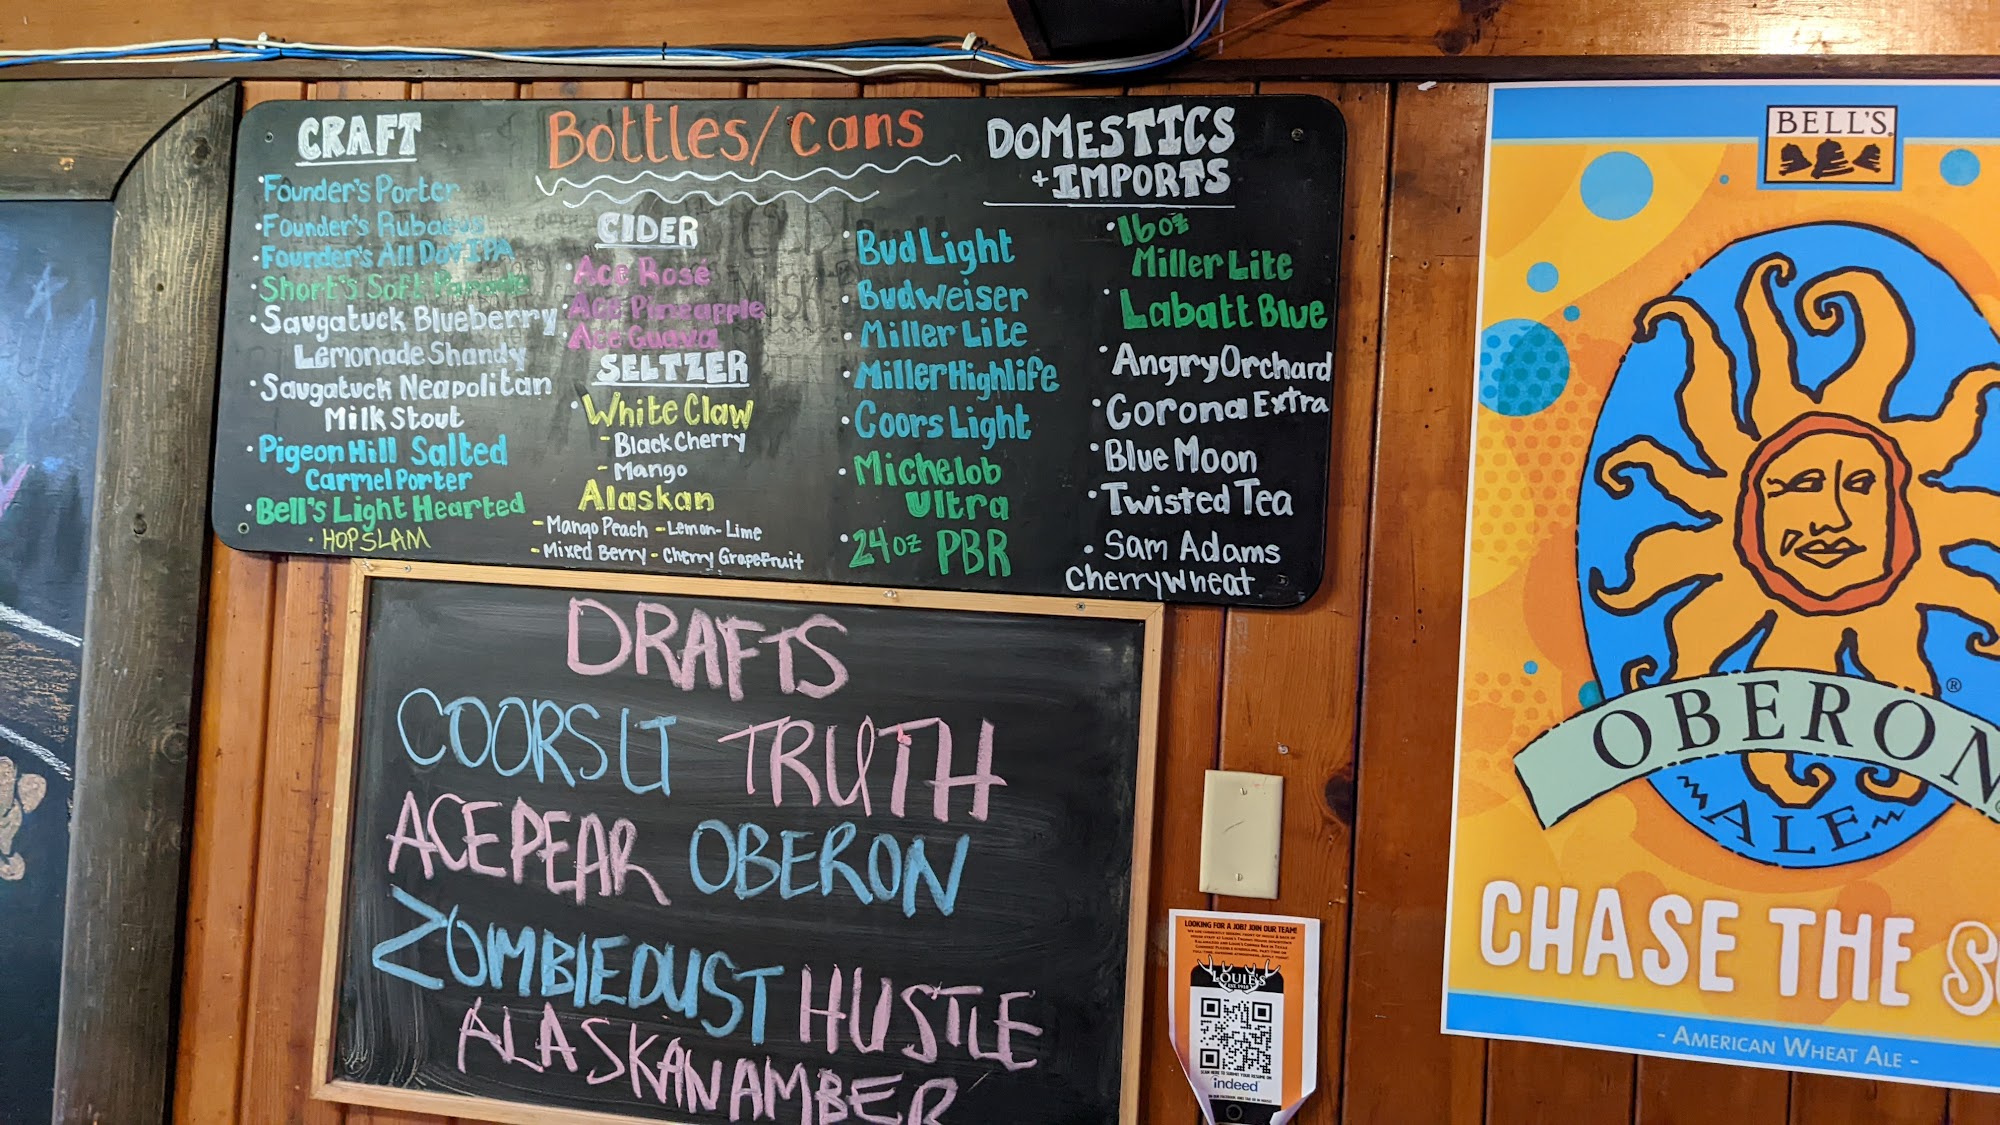 CRAFT
Founder's Porter
Founder's Rubaeus
Founder's All Day IPA
Short's Soft Parade
Saugatuck Blueberry
Lemonade Shandy
Saugatuck Neapolitan
Milk Stout
Pigeon Hill Salted
Carmel Porter
Bell's Light Hearted
HOPSLAM
Bottles/cans
CIDER
Ace Rosé
Ace Pineapple
Ace Guava
SELTZER
White Claw
- Black Cherry
- Mango
Alaskan
- Mango Peach - Lemon-Lime
- Mixed Berry - Cherry Grapefruit
DOMESTICS
+ IMPORTS
Bud Light
Budweiser
Miller Lite
Miller Highlife
Coors Light
Michelob
Ultra
24oz PBR
16oz
Miller Lite
Labatt Blue
Angry Orchard
Corona Extra
Blue Moon
Twisted Tea
Sam Adams
Cherry Wheat
DRAFTS
COORS LT TRUTH
ACE PEAR OBERON
ZOMBIE DUST HUSTLE
ALASKAN AMBER
LOOKING FOR A JOB? JOIN OUR TEAM!
LOUIE'S
indeed
BELL'S
OBERON
ALE
CHASE THE
- AMERICAN WHEAT ALE -